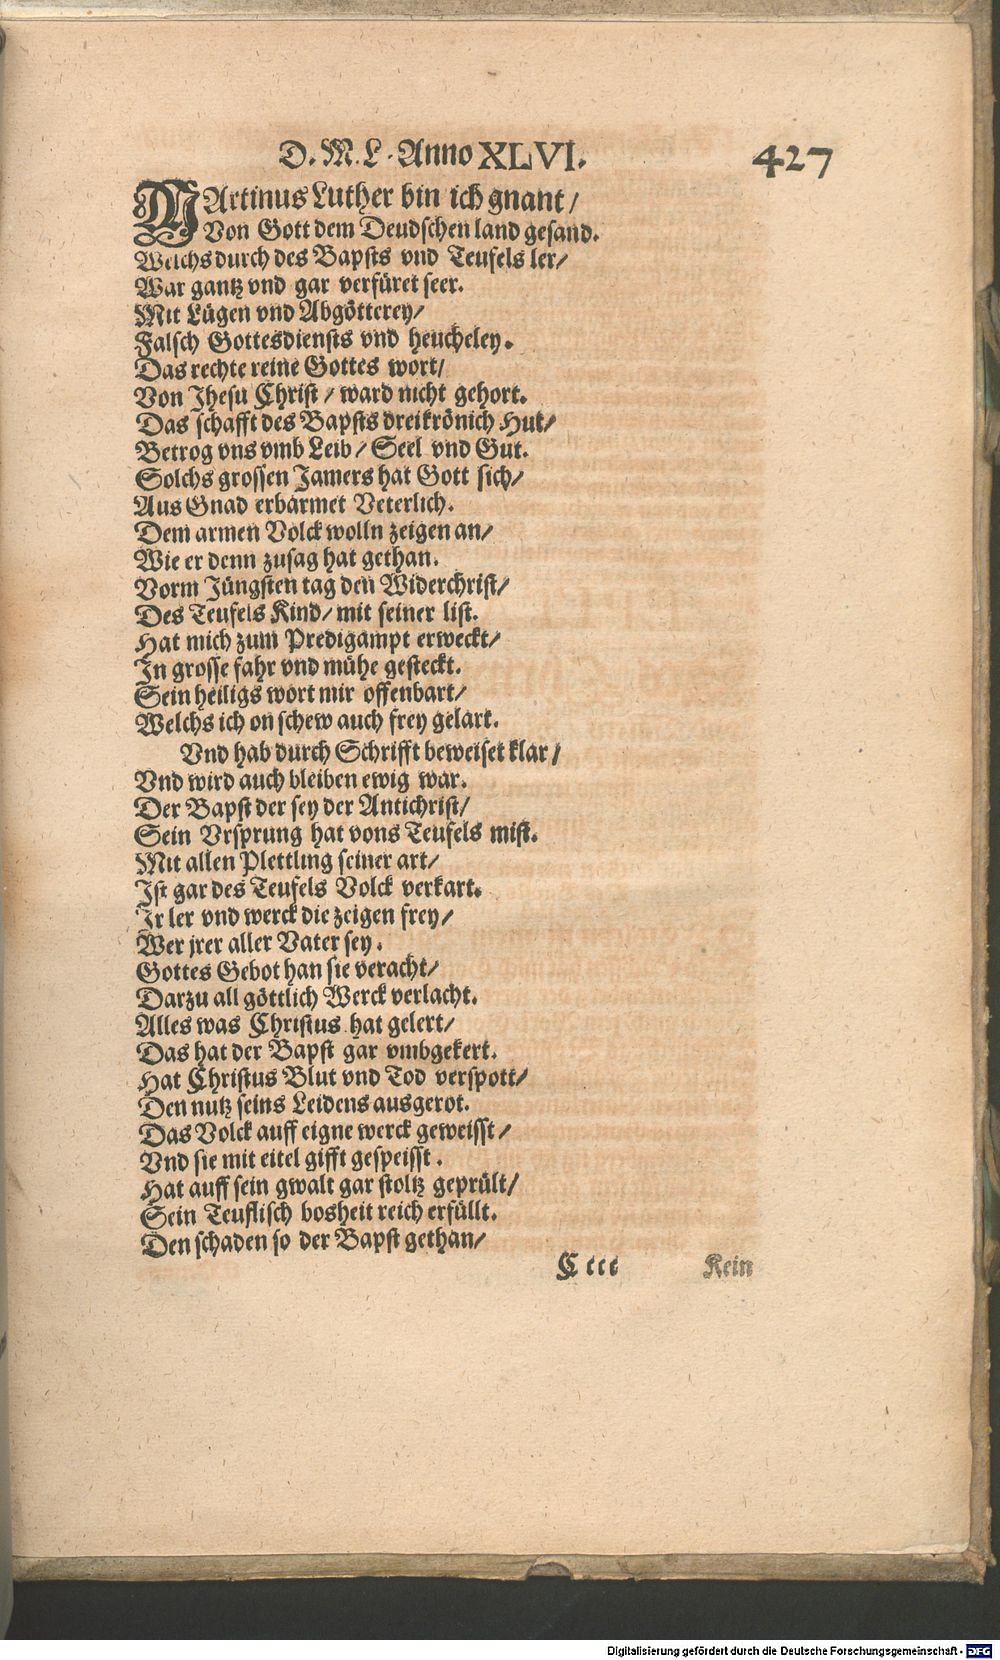 D. M. L. Anno XLVI. 427
MArtinus Luther bin ich gnant/
Von Gott dem Deudschen land gesand.
Welchs durch des Bapsts vnd Teufels ler/
War gantz vnd gar verfüret seer.
Mit Lügen vnd Abgötterey/
Falsch Gottesdiensts vnd heucheley.
Das rechte reine Gottes wort/
Von Jhesu Christ/ ward nicht gehort.
Das schafft des Bapsts dreikrönich Hut/
Betrog vns vmb Leib/ Seel vnd Gut.
Solchs grossen Jamers hat Gott sich/
Aus Gnad erbarmet Veterlich.
Dem armen Volck wolln zeigen an/
Wie er denn zusag hat gethan.
Vorm Jüngsten tag den Widerchrist/
Des Teufels Kind/ mit seiner list.
Hat mich zum Predigampt erweckt/
In grosse fahr vnd mühe gesteckt.
Sein heiligs wort mir offenbart/
Welchs ich on schew auch frey gelart.
Vnd hab durch Schrifft beweiset klar/
Vnd wird auch bleiben ewig war.
Der Bapst der sey der Antichrist/
Sein Vrsprung hat vons Teufels mist.
Mit allen Plettling seiner art/
Ist gar des Teufels Volck verkart.
Ir ler vnd werck die zeigen frey/
Wer jrer aller Vater sey.
Gottes Gebot han sie veracht/
Darzu all göttlich Werck verlacht.
Alles was Christus hat gelert/
Das hat der Bapst gar vmbgekert.
Hat Christus Blut vnd Tod verspott/
Den nutz seins Leidens ausgerot.
Das Volck auff eigne werck geweisst/
Vnd sie mit eitel gifft gespeisst.
Hat auff sein gwalt gar stoltz geprült/
Sein Teuflisch bosheit reich erfüllt.
Den schaden so der Bapst gethan/
C ccc Kein
Digitalisierung gefördert durch die Deutsche Forschungsgemeinschaft - DFG